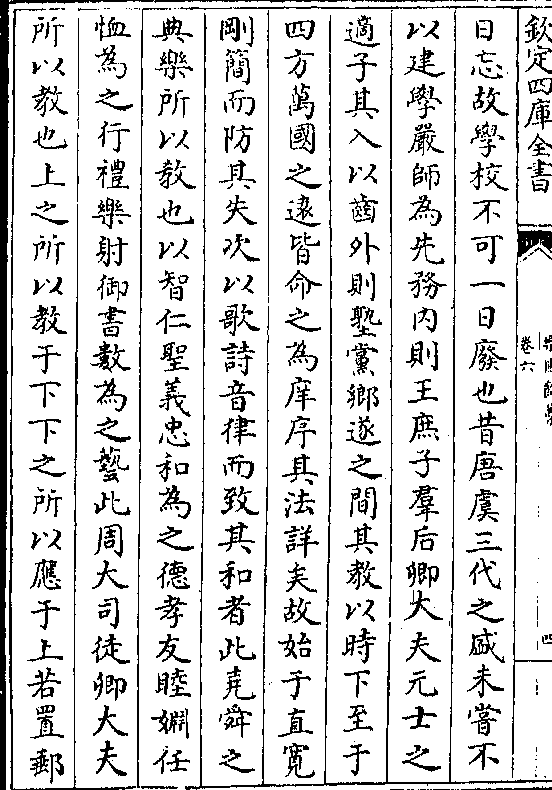 欽定四庫全書
卷六
四
日忘故學校不可一日廢也昔唐虞三代之盛未嘗不
以建學嚴師為先務内則王庶子羣后卿大夫元士之
適子其入以齒外則塾黨鄉遂之間其教以時下至于
四方萬國之遠皆命之為庠序其法詳矣故始于直寛
剛簡而防其失次以歌詩音律而致其和者此堯舜之
典樂所以教也以智仁聖義忠和為之德孝友睦婣任
恤為之行禮樂射御書數為之藝此周大司徒卿大夫
所以教也上之所以教于下下之所以應于上若置郵